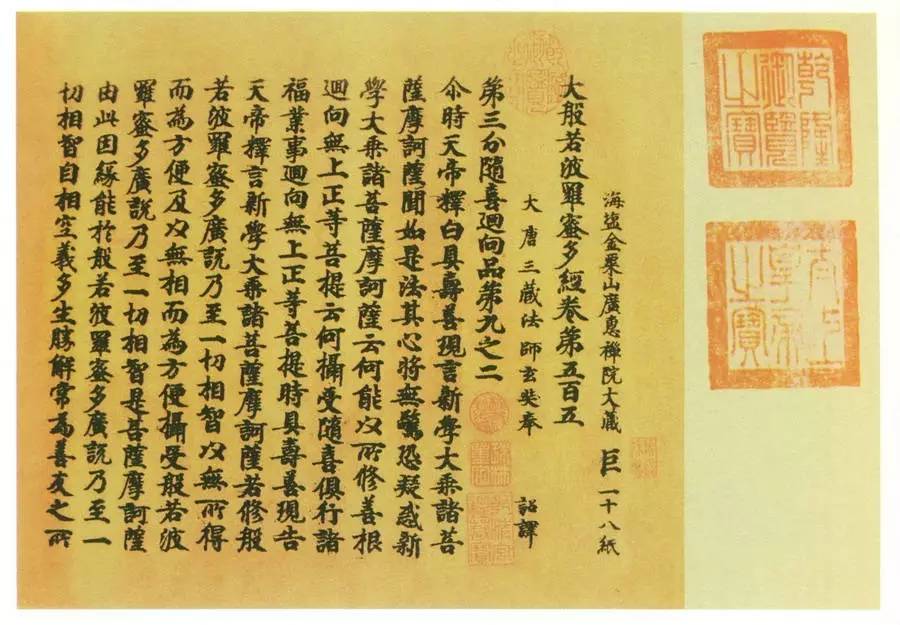 乾隆御覽之寶
太上皇帝之寶
海塩金粟山廣惠禪院大藏 巨 一十八紙
大般若波羅蜜多經卷第五百五
大唐三藏法師玄奘奉 詔譯
第三分隨喜迴向品第九之二
尒時天帝釋白具壽善現言新學大乘諸菩
薩摩訶薩聞如是法其心將無驚恐疑惑新
學大乘諸菩薩摩訶薩云何能以所修善根
迴向無上正等菩提云何攝受隨喜俱行諸
福業事迴向無上正等菩提時具壽善現告
天帝釋言新學大乘諸菩薩摩訶薩若修般
若波羅蜜多廣說乃至一切相智以無所得
而為方便及以無相而為方便攝受般若波
羅蜜多廣說乃至一切相智是菩薩摩訶薩
由此因緣能於般若波羅蜜多廣說乃至一
切相智自相空義多生勝解常為善友之所